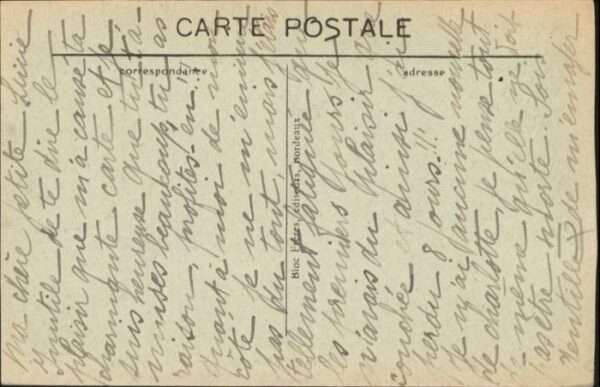 CARTE POSTALE
correspondance
adresse
Bloc Frères, éditeurs, Bordeaux
Ma chère petite
inutile de te dire le
plaisir que m'a causé ta
charmante carte et je
suis heureuse que tu t'a-
muses beaucoup, tu as
raison, profites-en!!
Quant à moi de mon
côté je ne m'ennuie
pas du tout, mais j'étais
tellement fatiguée tous
les premiers jours que
j'avais du plaisir
encore et ainsi j'ai
perdu 8 jours!!!
Je n'ai aucune nouvelle
de Charlotte, je pense tout
de même qu'elle ne doit
pas être morte. Sois
gentille de m'envoyer